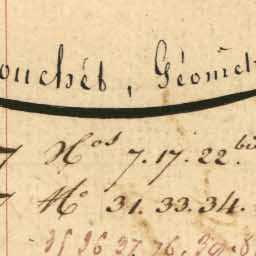 ouchet, Géomet
7 Nos 7. 17. 22. bis
7 No 31. 33. 34.
35 36 37. 76. 39. 8